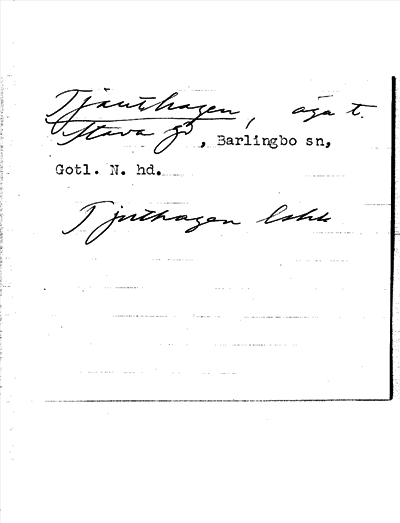 Tjauthagen, äga t.
Stava gd, Barlingbo sn,
Gotl. N. hd.
Tjuthagen